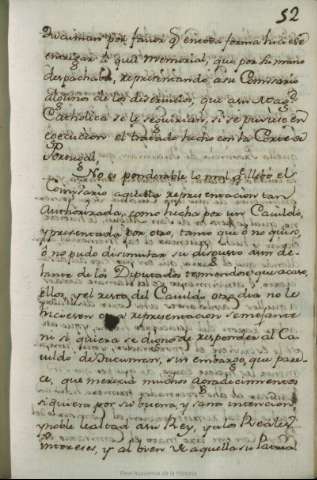 52
Tucuman por favor q̃ en otra forma hiciese
entregar aquel memorial, que por su mano
despachaba, representando a su Comisario
algunos de los deservicios, que a su Magᵈ
Catholica se le seguirian, si se pusiese en
execucion el tratado hecho con la Corte de
Portugal.
No es ponderable lo mal q̃ llevò el
Comisario aquella representacion tan
authorizada, como hecha por un Cavildo,
y presentada por otro, tanto que ò no quiso,
ò no pudo disimular su disgusto aun de-
lante de los Diputados temiendose que acaso
ellos, y el resto del Cavildo otro dia no le
hiciesen otra representacion semejante
ni si quiera se dignò de responder al Ca-
vildo de Tucuman, sin embargo, que pare-
ce, que merecia mucho agradecimiento
si quiera por su buena, y sana intencion
y noble lealtad a su Rey, y a los Reales
intereses, y al bien de aquella su Patria
Real Academia de la Historia